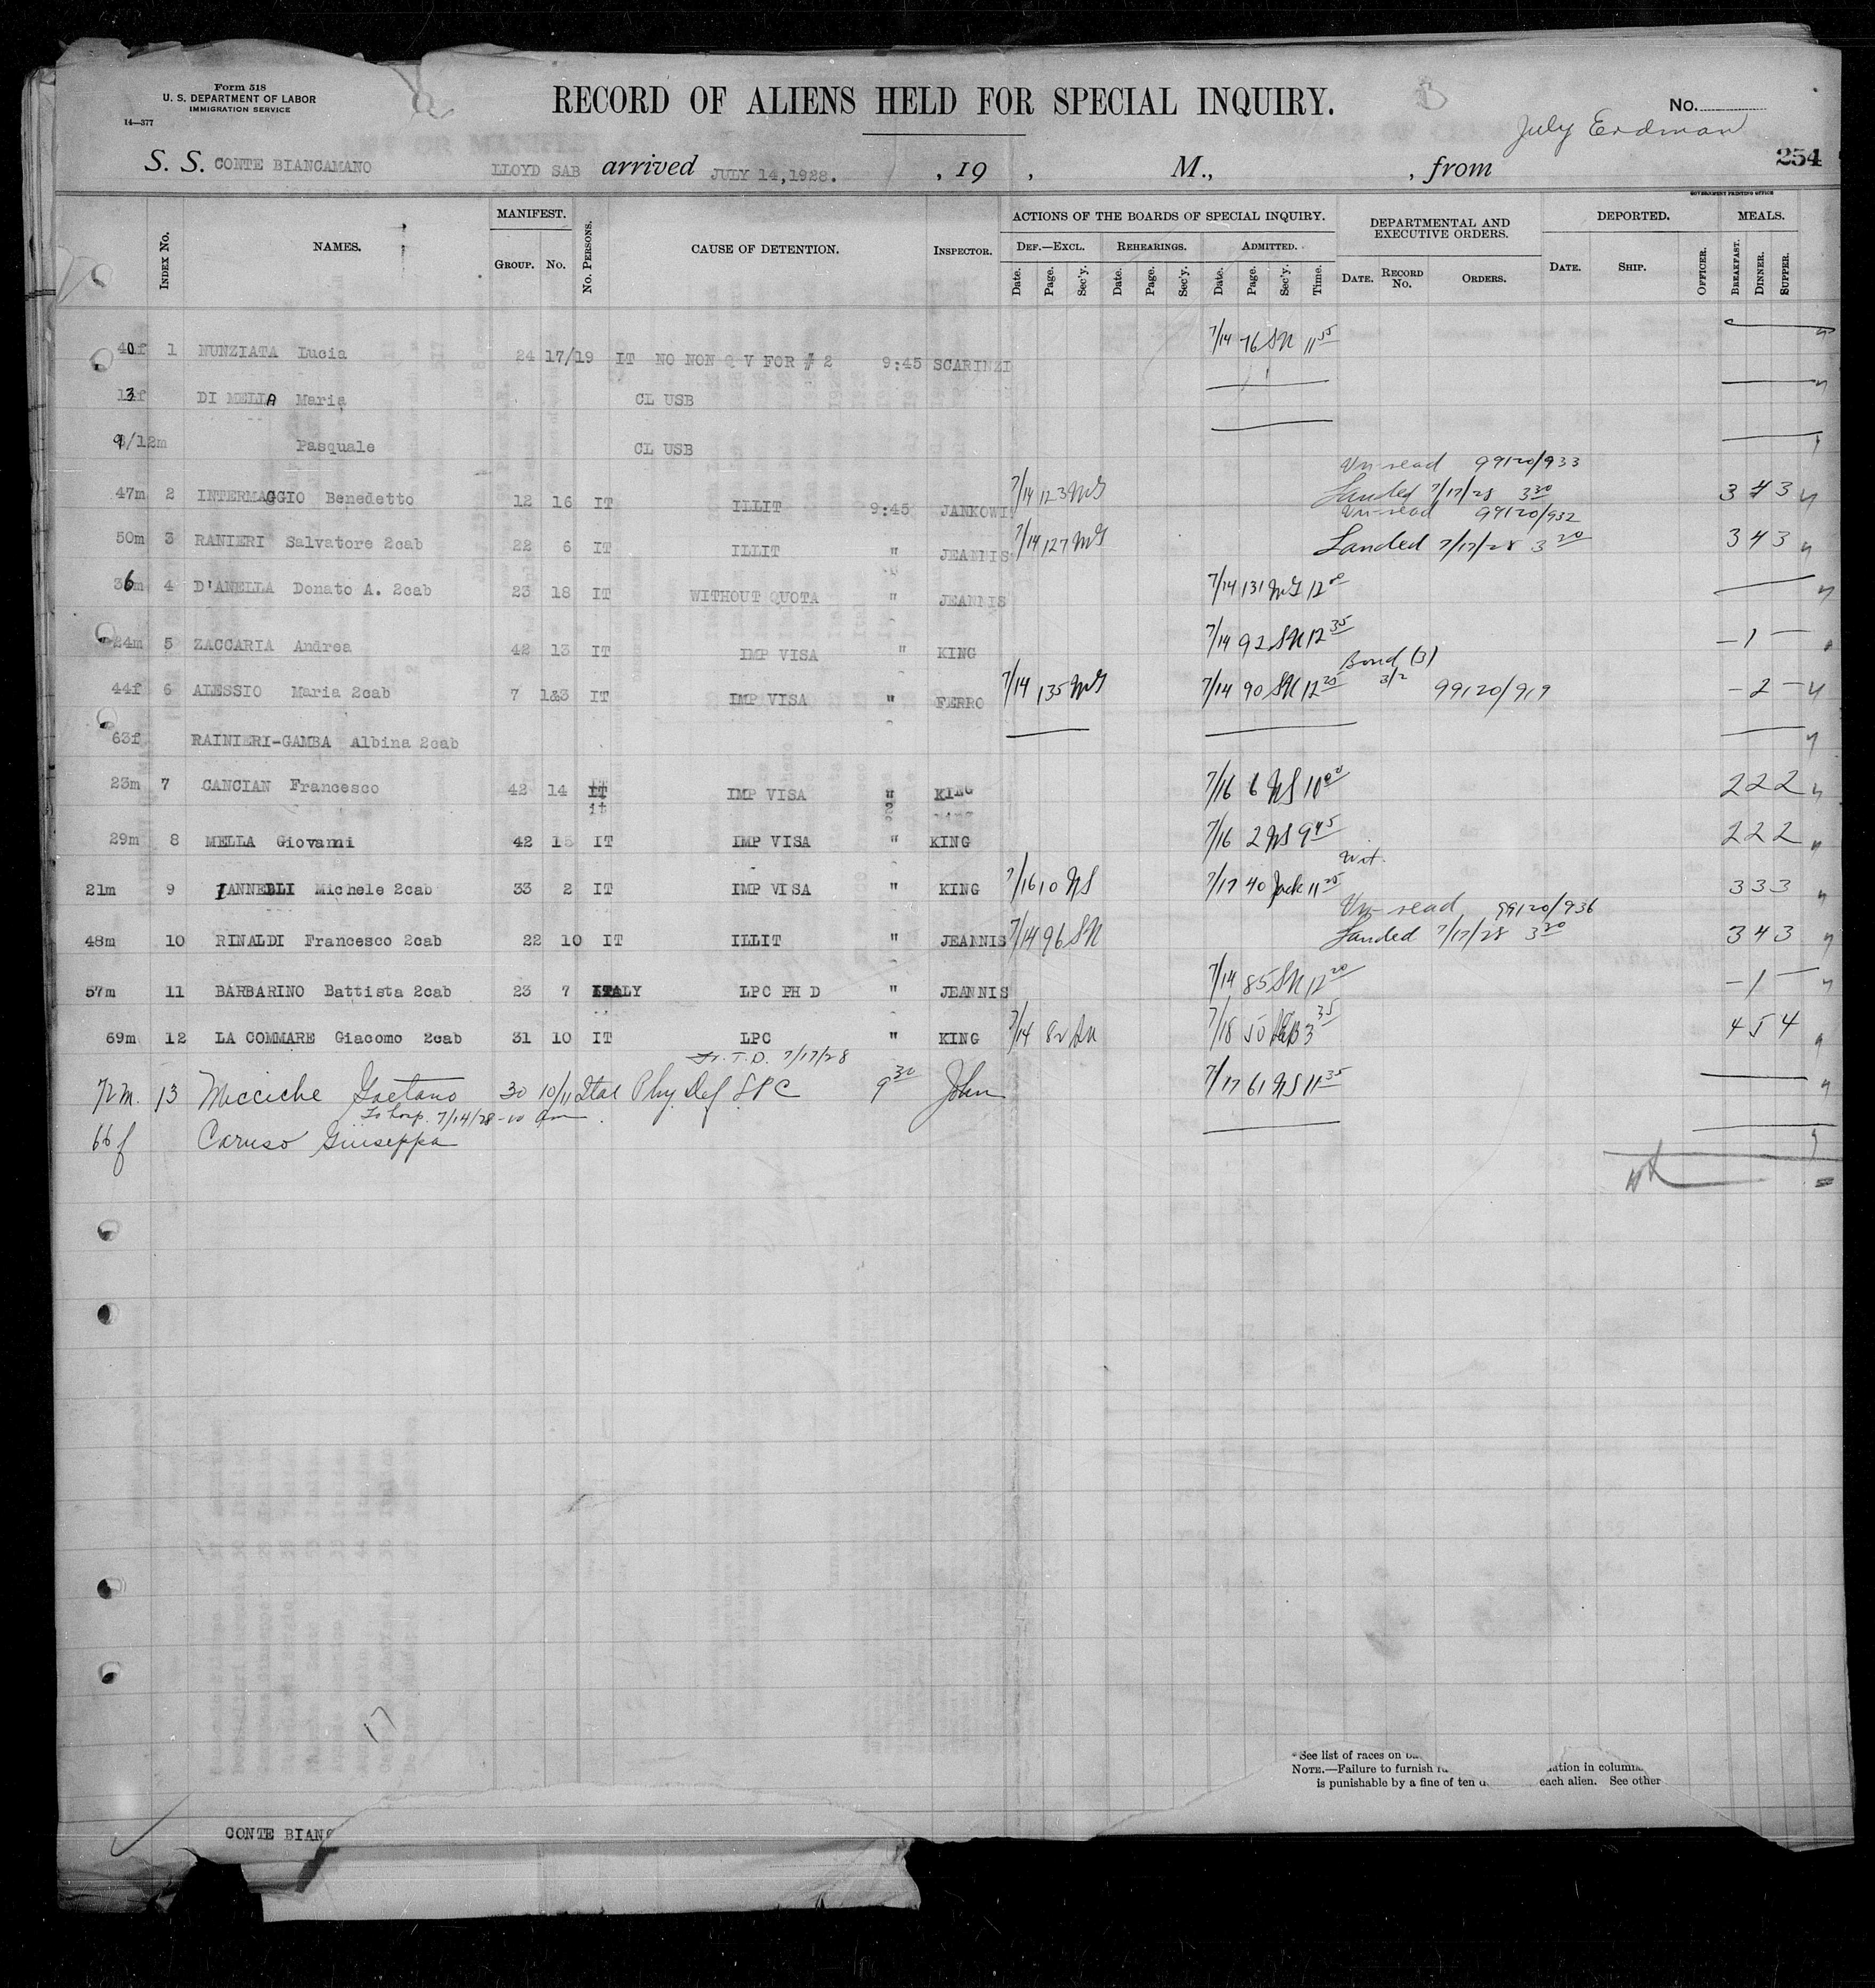 Form 518
U. S. DEPARTMENT OF LABOR
IMMIGRATION SERVICE
14—377
RECORD OF ALIENS HELD FOR SPECIAL INQUIRY.
B
No.
July Erdman
S. S. CONTE BIANCAMANO LLOYD SAB arrived JULY 14,1928. , 19 , M., , from
254
GOVERNMENT PRINTING OFFICE
Index No. NAMES. MANIFEST. Group. No. No. Persons. CAUSE OF DETENTION. Inspector. ACTIONS OF THE BOARDS OF SPECIAL INQUIRY. DEPARTMENTAL AND EXECUTIVE ORDERS. DEPORTED. MEALS.
Def.—Excl. Rehearings. Admitted.
Date. Page. Sec'y. Date. Page. Sec'y. Date. Page. Sec'y. Time. Date. Record No. Orders. Date. Ship. Officer. Breakfast. Dinner. Supper.
40f 1 NUNZIATA Lucia 24 17/19 IT NO NON Q V FOR # 2 9:45 SCARINZI 7/14 76 SN 11 55
13f DI MELLA Maria CL USB
9/12m Pasquale CL USB
Un-read 99120/933
47m 2 INTERMAGGIO Benedetto 12 16 IT ILLIT 9:45 JANKOWI 7/14 123 MG Landed 7/17/28 3 20 3 4 3
Un-read 99120/932
50m 3 RANIERI Salvatore 2cab 22 6 IT ILLIT " JEANNIS 7/14 127 MG Landed 7/17/28 3 20 3 4 3
36m 4 D'ANELLA Donato A. 2cab 23 18 IT WITHOUT QUOTA " JEANNIS 7/14 131 MG 12 00
24m 5 ZACCARIA Andrea 42 13 IT IMP VISA " KING 7/14 92 SN 12 35 — 1 —
Bond (3)
44f 6 ALESSIO Maria 2cab 7 1&3 IT IMP VISA " FERRO 7/14 135 MG 7/14 90 SN 12 20 3/2 99120/919 — 2 —
63f RAINIERI-GAMBA Albina 2cab
23m 7 CANCIAN Francesco 42 14 IT IMP VISA " KING 7/16 6 NS 10 00 2 2 2
29m 8 MELLA Giovanni 42 15 IT IMP VISA " KING 7/16 2 NS 9 45 2 2 2
Wit.
21m 9 IANNELLI Michele 2cab 33 2 IT IMP VISA " KING 7/16 10 NS 7/17 40 Jack 11 25 3 3 3
Un-read 99120/936
48m 10 RINALDI Francesco 2cab 22 10 IT ILLIT " JEANNIS 7/14 96 SN Landed 7/17/28 3 20 3 4 3
57m 11 BARBARINO Battista 2cab 23 7 ITALY LPC PH D " JEANNIS 7/14 85 SN 12 20 — 1 —
69m 12 LA COMMARE Giacomo 2cab 31 10 IT LPC " KING 7/14 82 SN 7/18 50 3 35 4 5 4
Fr. T.D. 7/17/28
72m. 13 Micciche Gaetano 30 10/11 Ital Phy Def LPC 9 30 John 7/17 61 NS 11 35
To hosp. 7/14/28-10 am
66f Caruso Giuseppa
*See list of races on
NOTE.—Failure to furnish ation in column
is punishable by a fine of ten each alien. See other
CONTE BIANC